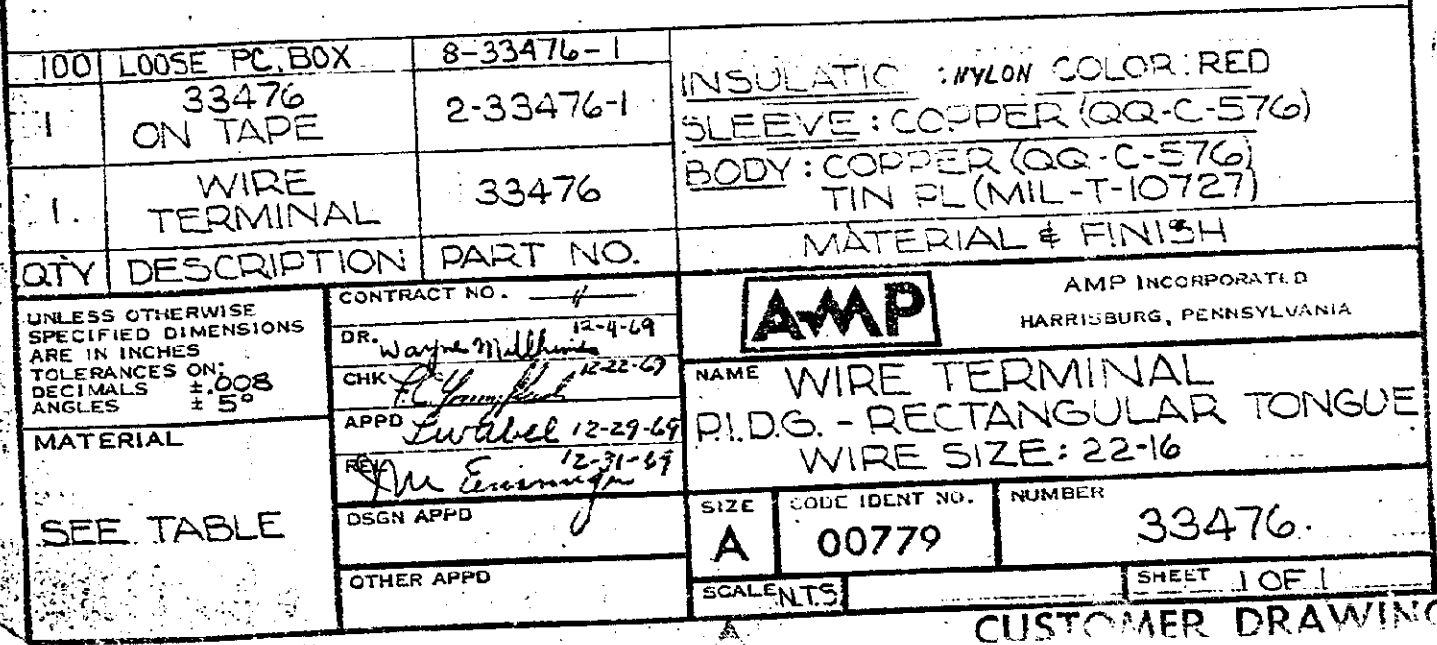 100 LOOSE PC. BOX 8-33476-1
1 33476 ON TAPE 2-33476-1
1. WIRE TERMINAL 33476
QTY DESCRIPTION PART NO.
INSULATIO : NYLON COLOR: RED
SLEEVE: COPPER (QQ-C-576)
BODY: COPPER (QQ-C-576)
TIN PL (MIL-T-10727)
MATERIAL & FINISH
UNLESS OTHERWISE
SPECIFIED DIMENSIONS
ARE IN INCHES
TOLERANCES ON:
DECIMALS ±.008
ANGLES ± 5°
MATERIAL
SEE TABLE
CONTRACT NO.
DR. Wayne 12-4-69
CHK 12-22-69
APPD 12-29-69
12-31-69
DSGN APPD
OTHER APPD
AMP
AMP INCORPORATED
HARRISBURG, PENNSYLVANIA
NAME WIRE TERMINAL
P.I.D.G. - RECTANGULAR TONGUE
WIRE SIZE: 22-16
SIZE A
CODE IDENT NO. 00779
NUMBER 33476.
SCALE N.T.S.
SHEET 1 OF 1
CUSTOMER DRAWING